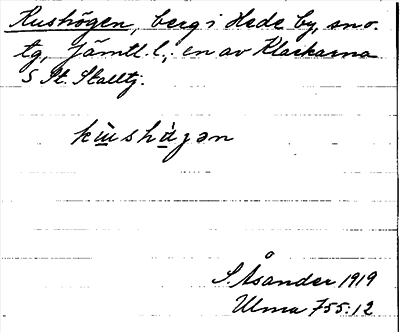 Kushögen, berg i Hede by, sn o.
tg, Jämtl. l.; en av Klackarna
S St. Stalltj.
S. Åsander 1919
Ulma 755:12